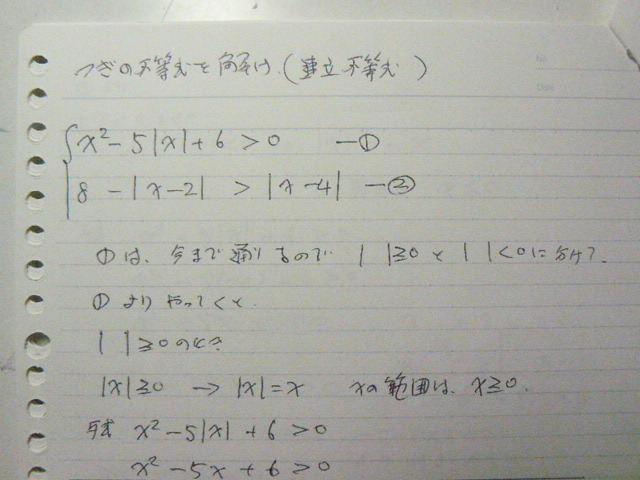 つぎの不等式を解け.(連立不等式)
x²-5|x|+6 > 0 ー①
8-|x-2| > |x-4| ー②
①は、今まで通りなので | |≥0 と | |<0に分けて.
①よりやってくと.
| |≥0のとき
|x|≥0 → |x|=x xの範囲は、x≥0.
与式 x²-5|x|+6 >0
x²-5x+6>0